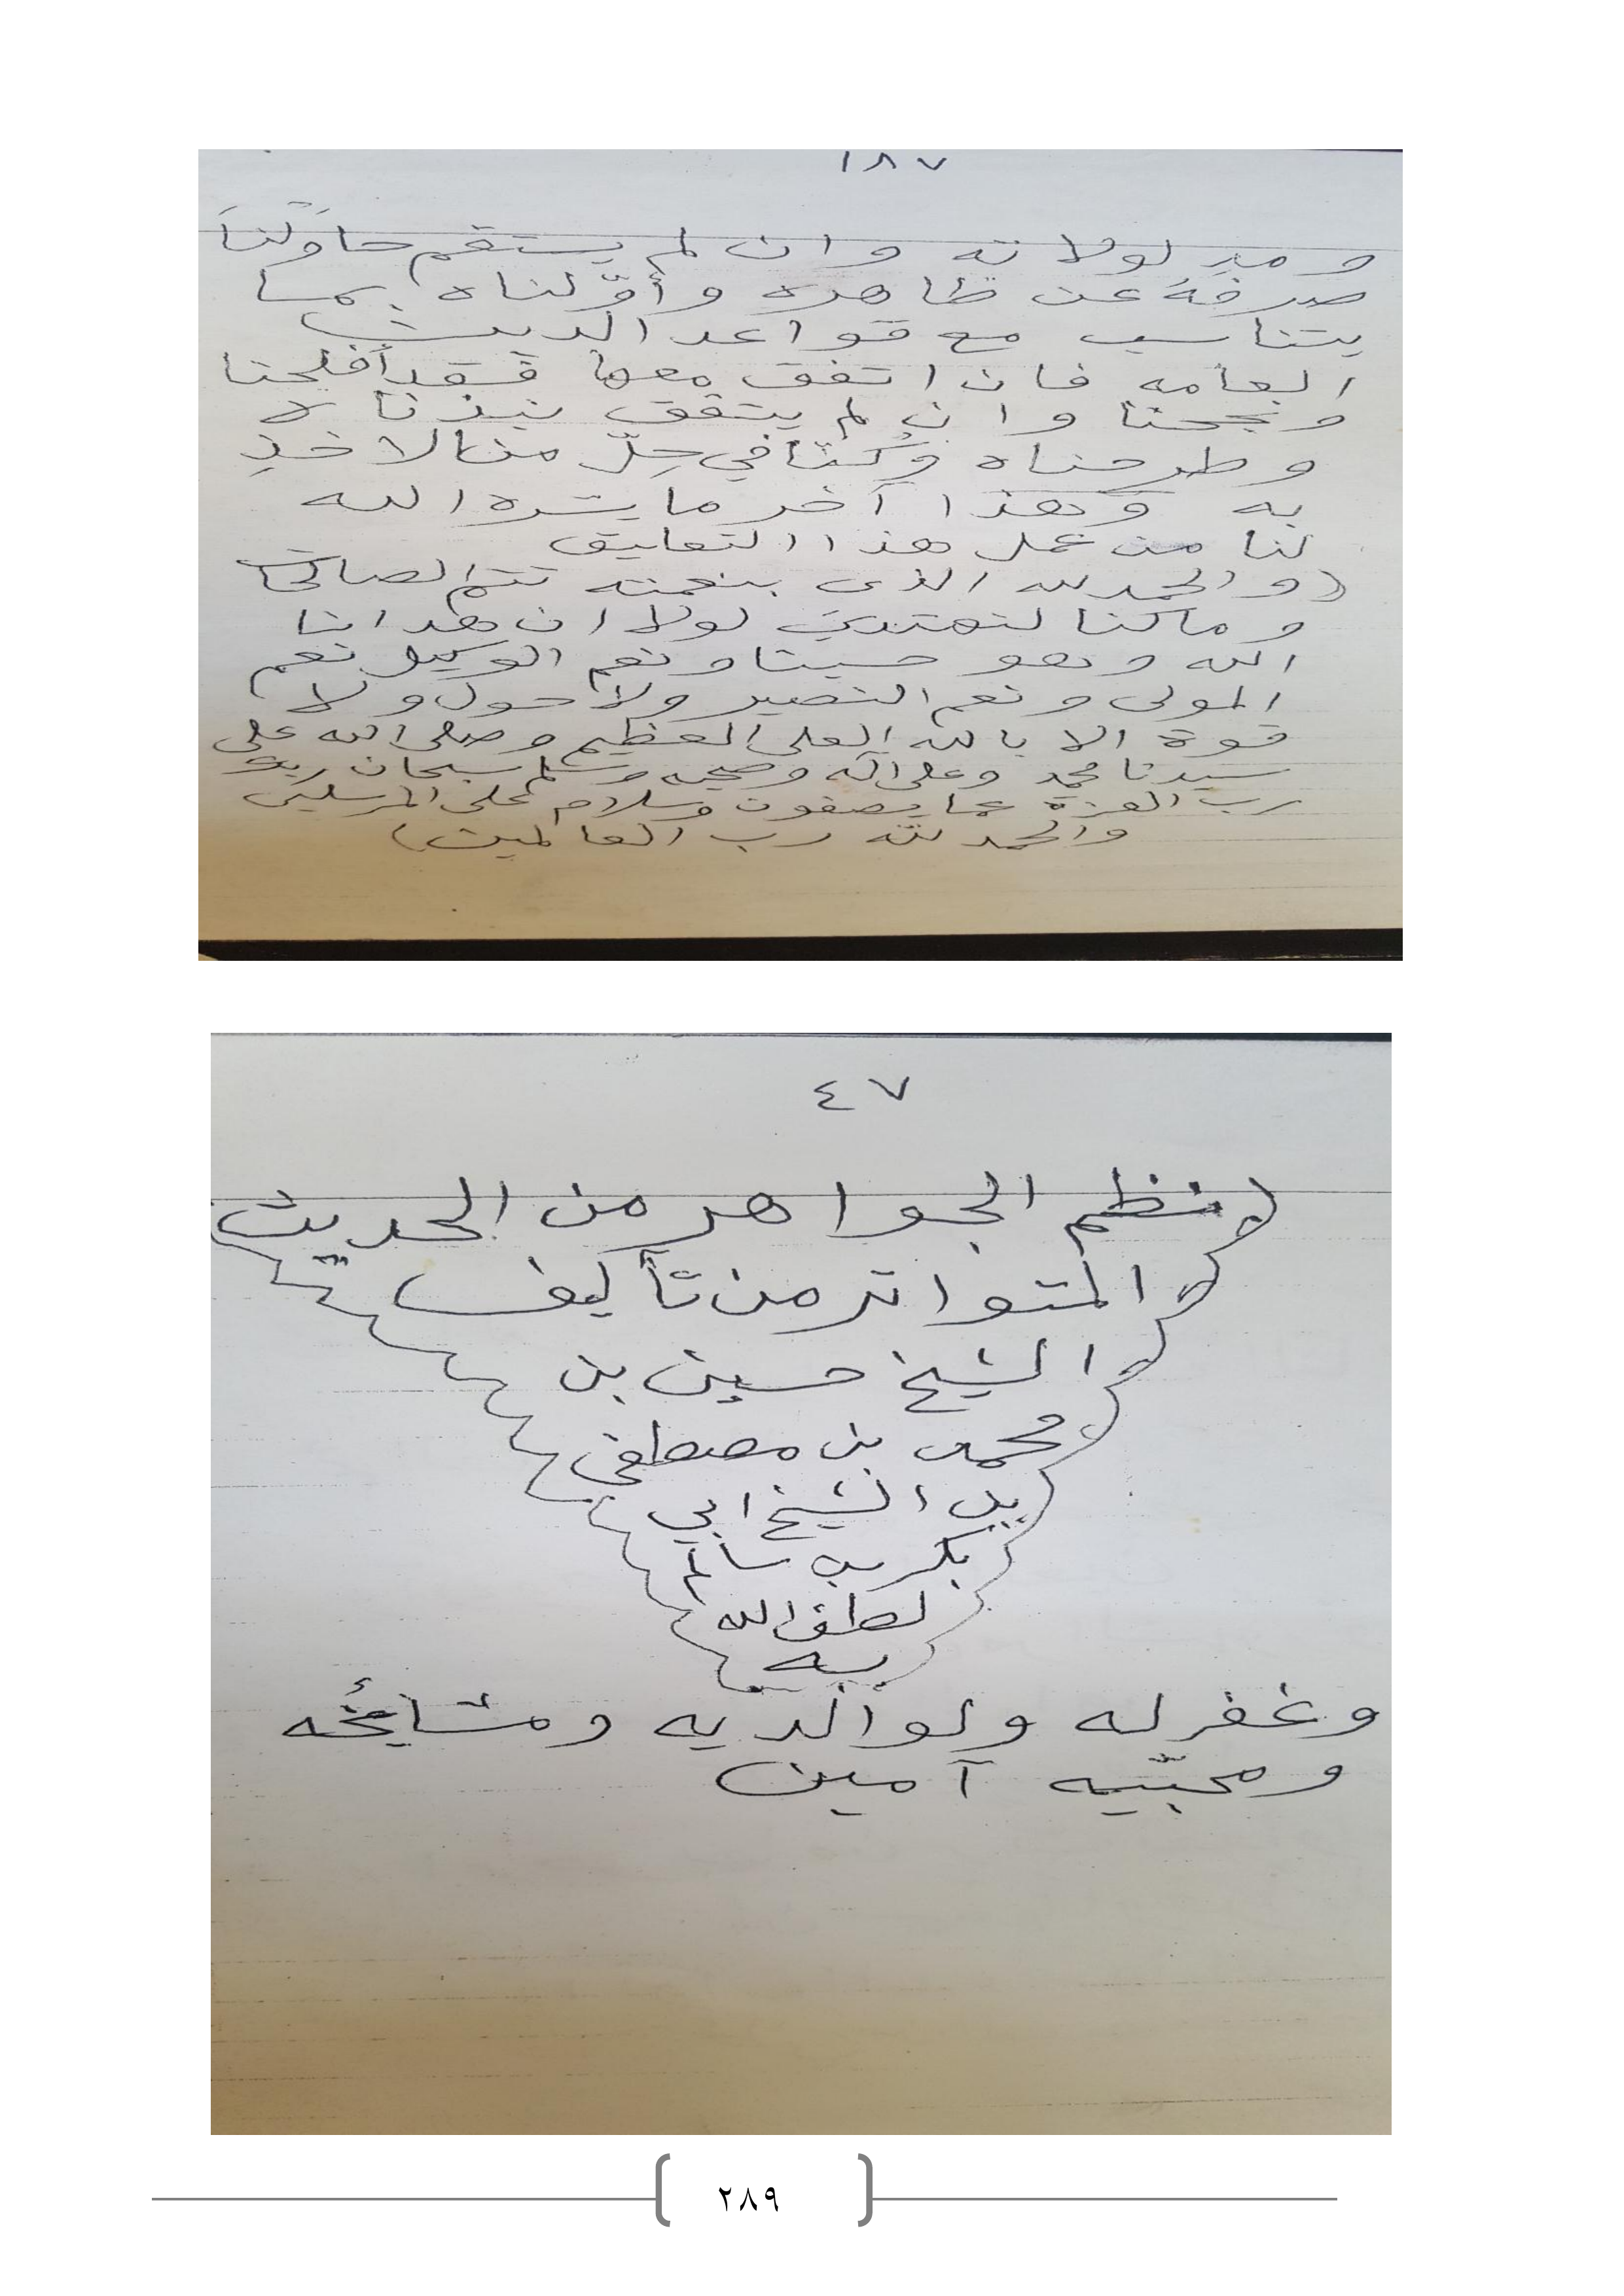 ١٨٧
ومدلولاته وان لم يستقم حاوَلنَا
صرفهُ عن ظاهره وأوّلناه بما
يتناسب مع قواعد الدين
العامه فان اتفق معها فقد أفلحنا
ونجحنا وان لم يتفق نبذنا لا
وطرحناه وكُنّا في حِلّ من الاخذِ
به وهذا آخر ما يسره الله
لنا من عمل هذا التعليق
(والحمدلله الذى بنعمته تتم الصالحات
وماكنا لنهتدي لولا ان هدانا
الله وهو حسبنا ونعم الوكيل نعم
المولى ونعم النصير ولا حول ولا
قوة الا بالله العلى العظيم وصلى الله على
سيدنا محمد وعلى آله وصحبه وسلم سبحان ربك
رب العزة عما يصفون وسلام على المرسلين
والحمد لله رب العالمين)
٤٧
نظم الجواهر من الحديث
المتواتر من تأليف
الشيخ حسين بن
محمد بن مصطفى
بن الشيخ ابي
بكر بن سالم
لطف الله
به
وغفر له ولوالديه ومشائخه
ومحبّيه آمين
٢٨٩